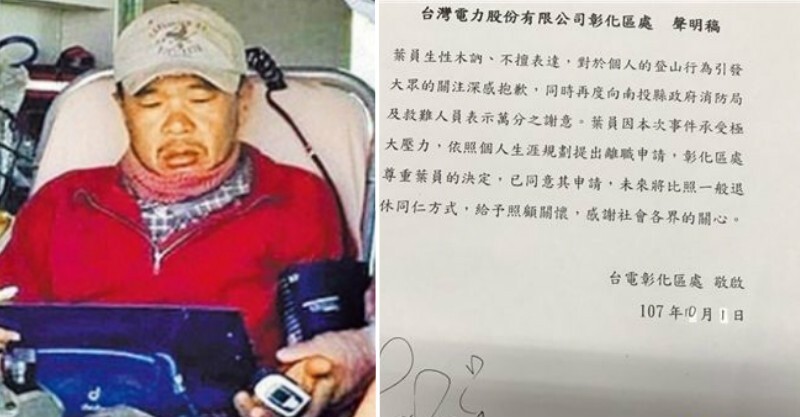 台灣電力股份有限公司彰化區處　聲明稿
葉員生性木訥、不擅表達，對於個人的登山行為引發
大眾的關注深感抱歉，同時再度向南投縣政府消防局
及救難人員表示萬分之謝意。葉員因本次事件承受極
大壓力，依照個人生涯規劃提出離職申請，彰化區處
尊重葉員的決定，已同意其申請，未來將比照一般退
休同仁方式，給予照顧關懷，感謝社會各界的關心。
台電彰化區處 敬啟
107 年 10 月 1 日